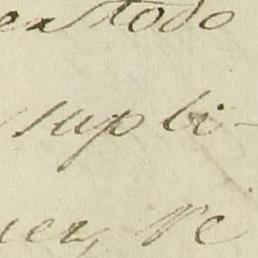 en todo
supli-
uer, Re